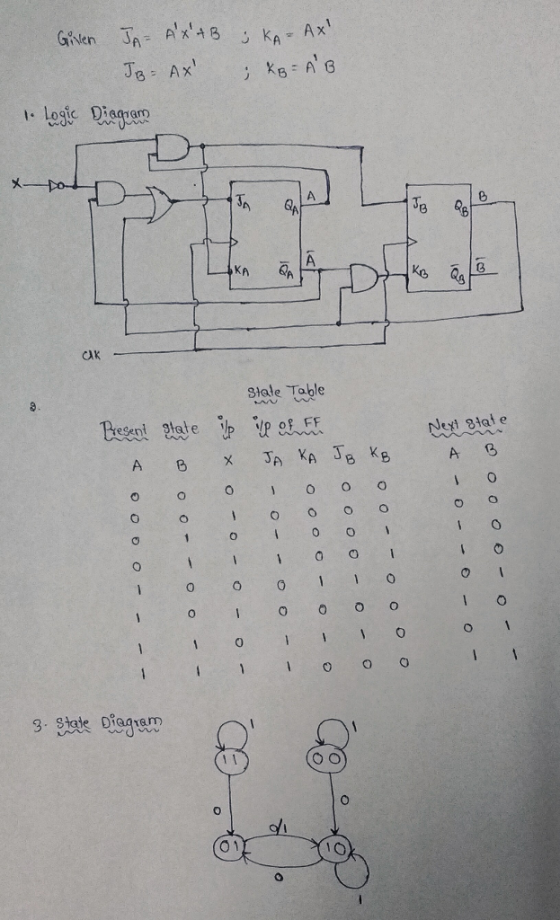 Given JA = A'x'+B ; KA = Ax'
JB = Ax' ; KB = A'B
1. Logic Diagram
X
A
JA QA
KA Q̅A A̅
JB QB B
KB Q̅B B̅
CLK
State Table
2.
Present State i/p i/p of FF Next State
A B X JA KA JB KB A B
0 0 0 1 0 0 0 1 0
0 0 1 0 0 0 0 0 0
0 1 0 1 0 0 1 1 0
0 1 1 1 0 0 1 1 0
1 0 0 0 1 1 0 0 1
1 0 1 0 0 0 0 1 0
1 1 0 1 1 1 0 0 1
1 1 1 1 0 0 0 1 1
3. State Diagram
1 1
11 00
0 0
0/1
01 10
0
1